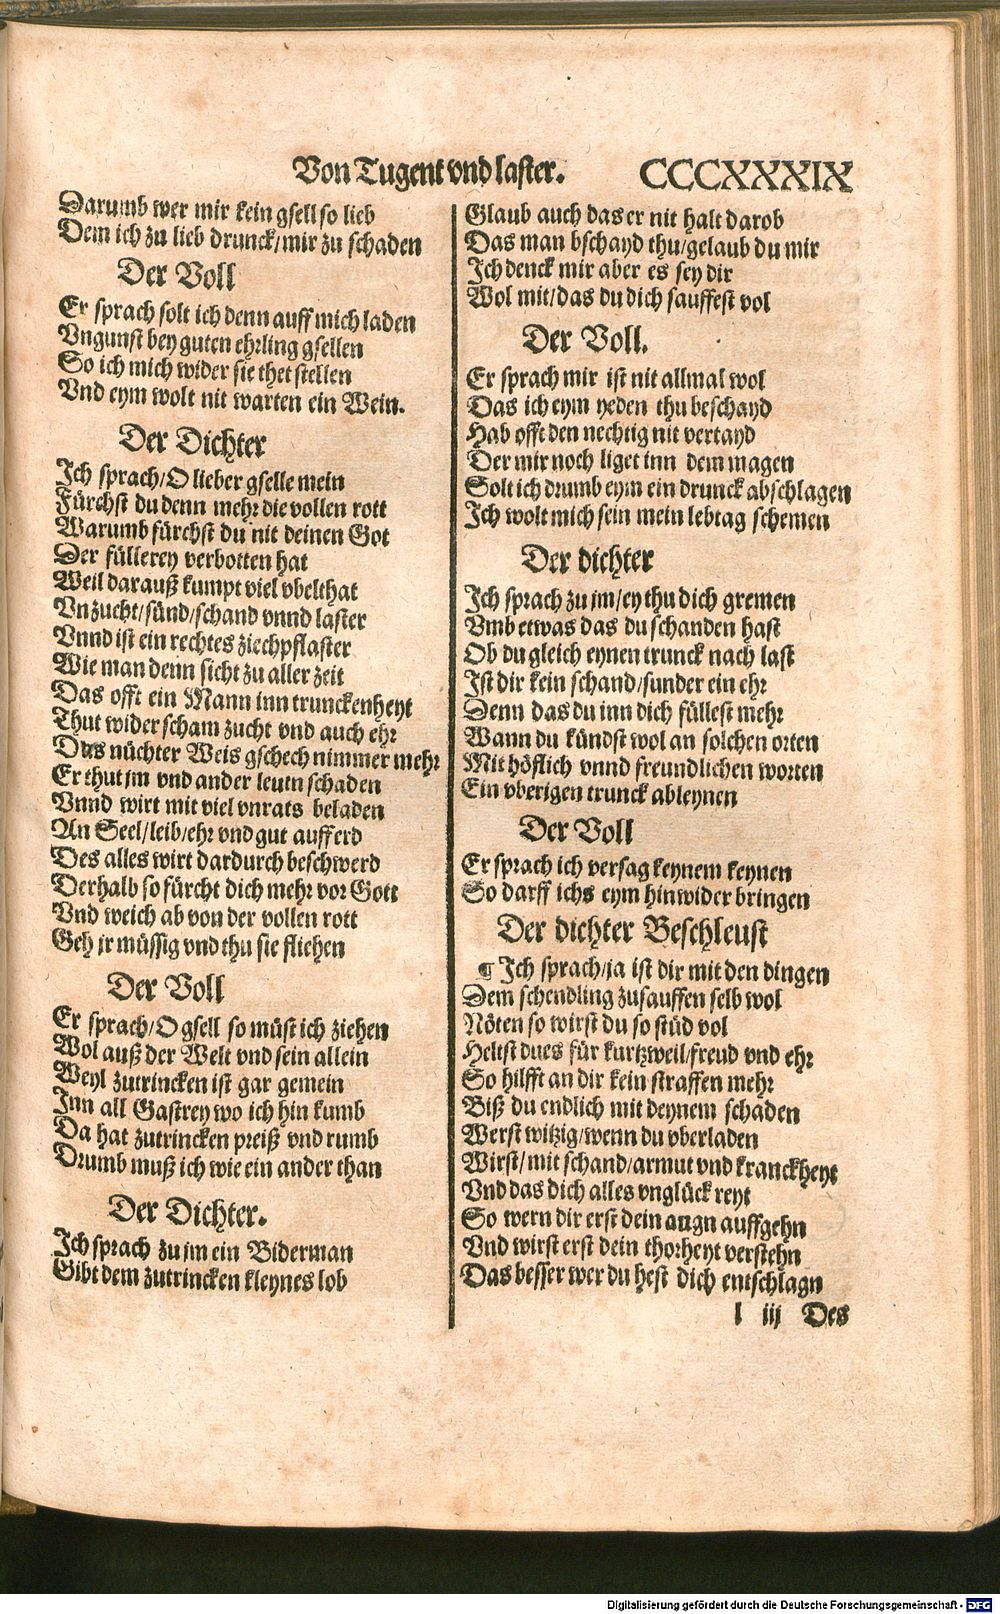 Von Tugent vnd laster. CCCXXXIX
Darumb wer mir kein gsell so lieb
Dem ich zu lieb drunck/mir zu schaden
Der Voll
Er sprach solt ich denn auff mich laden
Vngunst bey guten ehrling gsellen
So ich mich wider sie thet stellen
Vnd eym wolt nit warten ein Wein.
Der Dichter
Ich sprach/O lieber gselle mein
Fürchst du denn mehr die vollen rott
Warumb fürchst du nit deinen Got
Der füllerey verbotten hat
Weil darauß kumpt viel vbelthat
Vnzucht/sünd/schand vnnd laster
Vnnd ist ein rechtes ziechpflaster
Wie man denn sicht zu aller zeit
Das offt ein Mann inn trunckenheyt
Thut wider scham zucht vnd auch ehr
Das nüchter Weis gschech nimmer mehr
Er thut jm vnd ander leutn schaden
Vnnd wirt mit viel vnrats beladen
An Seel/leib/ehr vnd gut aufferd
Des alles wirt dardurch beschwerd
Derhalb so fürcht dich mehr vor Gott
Vnd weich ab von der vollen rott
Geh jr müssig vnd thu sie fliehen
Der Voll
Er sprach/O gsell so müst ich ziehen
Wol auß der Welt vnd sein allein
Weyl zutrincken ist gar gemein
Inn all Gastrey wo ich hin kumb
Da hat zutrincken preiß vnd rumb
Drumb muß ich wie ein ander than
Der Dichter.
Ich sprach zu jm ein Biderman
Gibt dem zutrincken kleynes lob
Glaub auch das er nit halt darob
Das man bschayd thu/gelaub du mir
Ich denck mir aber es sey dir
Wol mit/das du dich sauffest vol
Der Voll.
Er sprach mir ist nit allmal wol
Das ich eym yeden thu beschayd
Hab offt den nechtig nit vertayd
Der mir noch liget inn dem magen
Solt ich drumb eym ein drunck abschlagen
Ich wolt mich sein mein lebtag schemen
Der dichter
Ich sprach zu jm/ey thu dich gremen
Vmb etwas das du schanden hast
Ob du gleich eynen trunck nach last
Ist dir kein schand/sunder ein ehr
Denn das du inn dich füllest mehr
Wann du kündst wol an solchen orten
Mit höflich vnnd freundlichen worten
Ein vberigen trunck ableynen
Der Voll
Er sprach ich versag keynem keynen
So darff ichs eym hinwider bringen
Der dichter Beschleust
¶ Ich sprach/ja ist dir mit den dingen
Dem schendling zusauffen selb wol
Nöten so wirst du so stüd vol
Heltst dues für kurtzweil/freud vnd ehr
So hilfft an dir kein straffen mehr
Biß du endlich mit deynem schaden
Werst witzig/wenn du vberladen
Wirst/mit schand/armut vnd kranckheyt
Vnd das dich alles vnglück reyt
So wern dir erst dein augn auffgehn
Vnd wirst erst dein thorheyt verstehn
Das besser wer du hest dich entschlagn
l iij Des
Digitalisierung gefördert durch die Deutsche Forschungsgemeinschaft - DFG